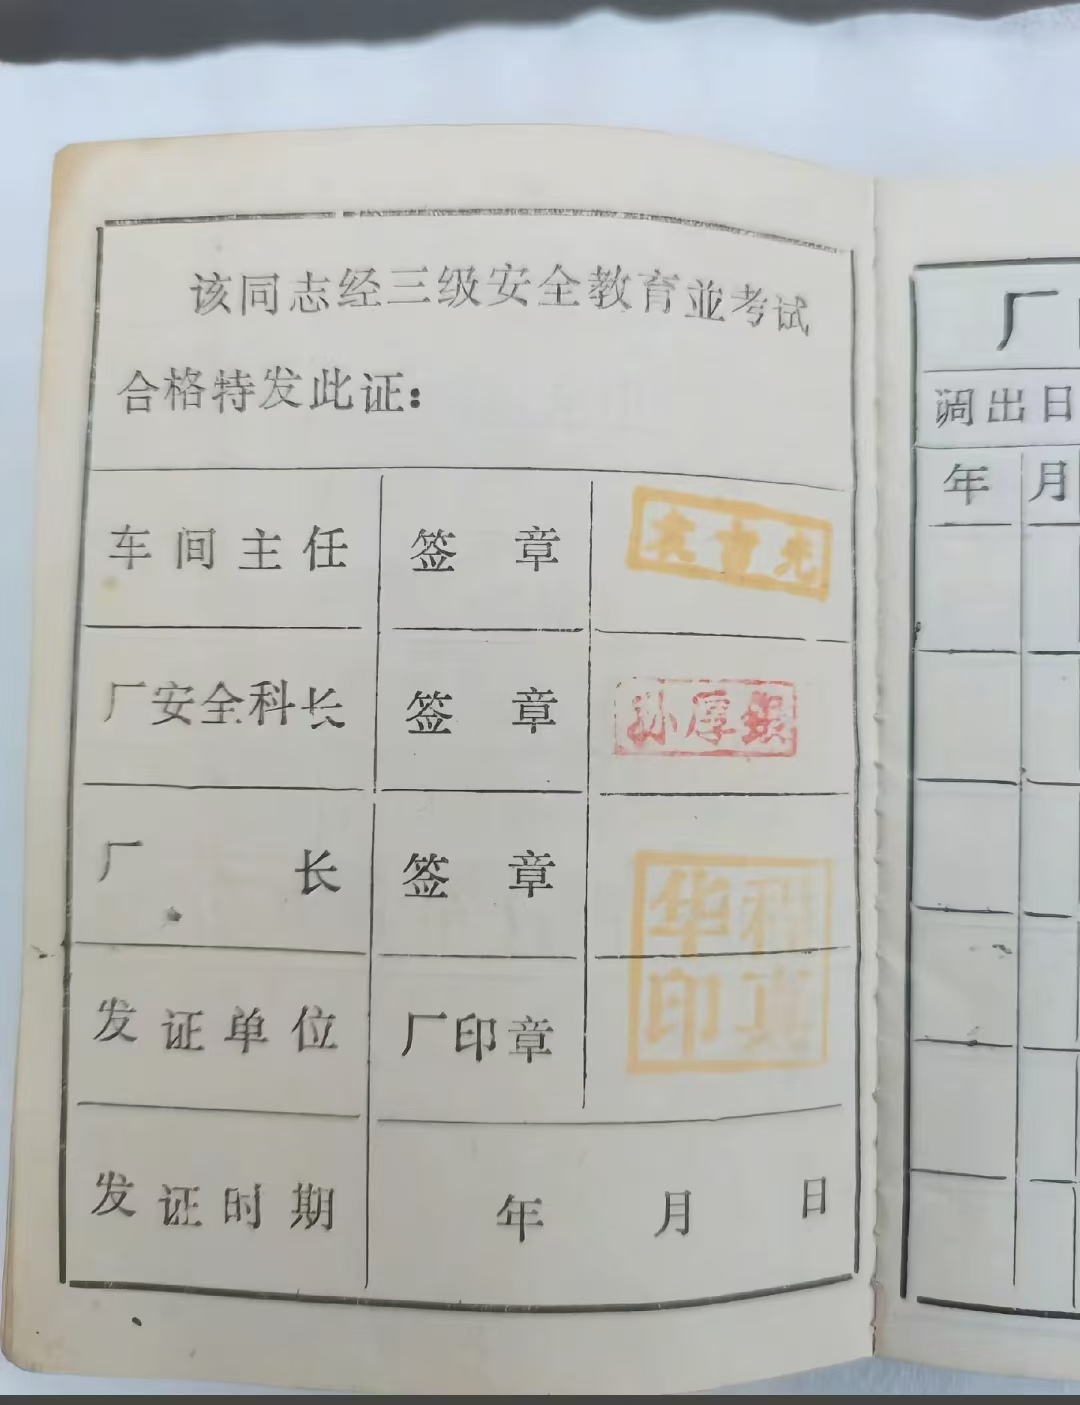 该同志经三级安全教育並考试
合格特发此证：
车间主任 签章
厂安全科长 签章 孙厚银
厂长 签章
华程
印真
发证单位 厂印章
发证时期 年 月 日
厂
调出日
年 月